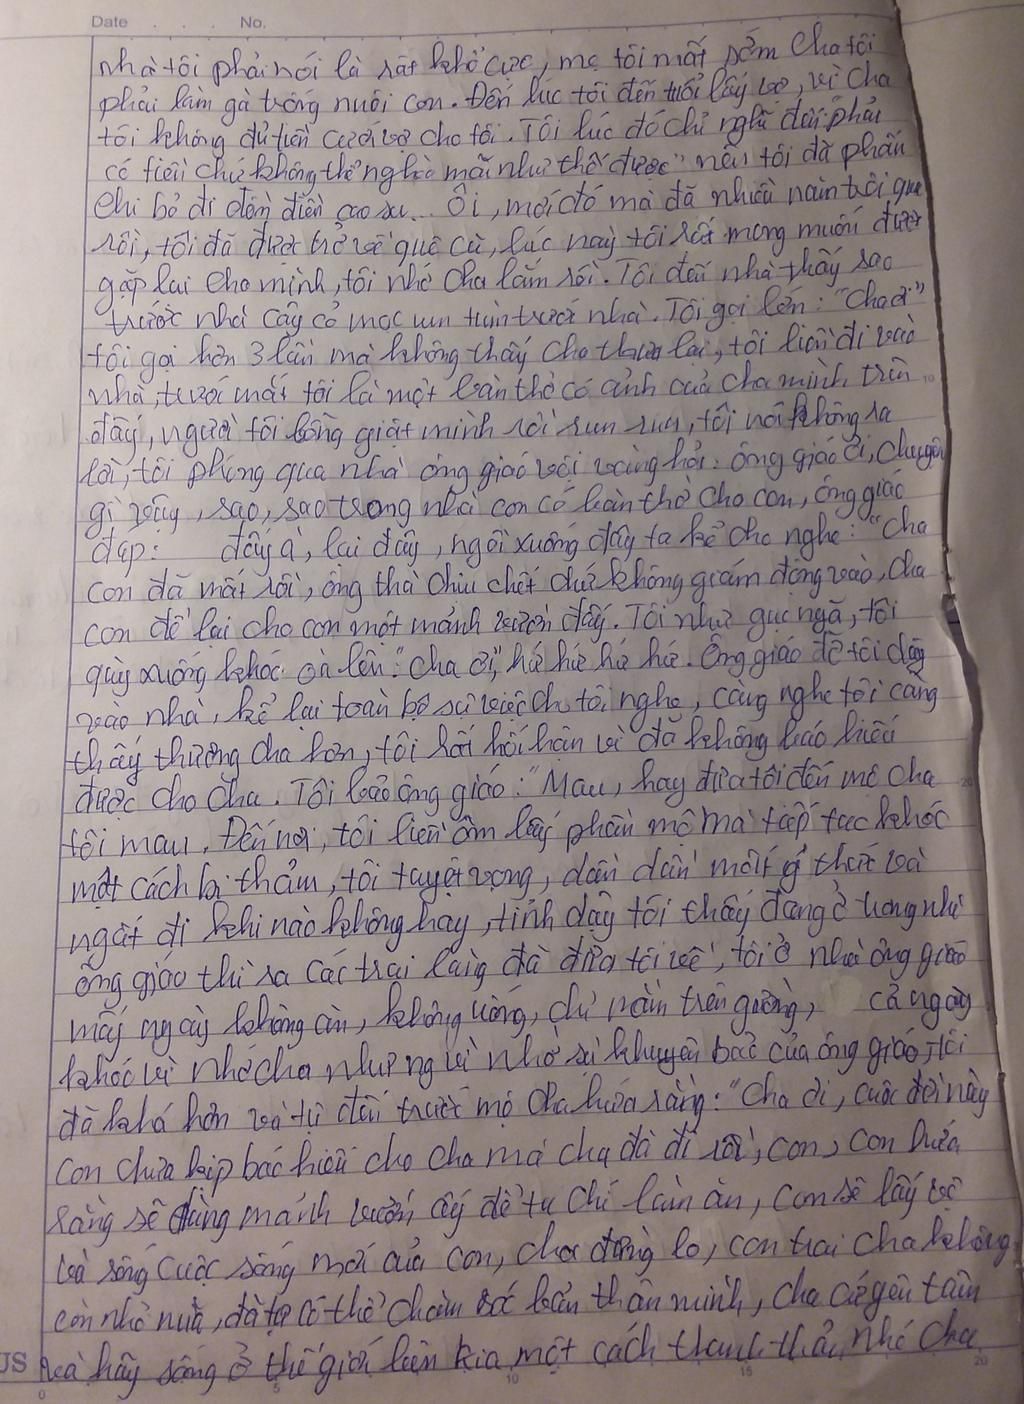 Date . . . No.
nhà tôi phải nói là rất khổ cực, mẹ tôi mất sớm cha tôi
phải làm gà trống nuôi con. Đến lúc tôi đến tuổi lấy vợ, vì cha
tôi không đủ tiền cưới vợ cho tôi. Tôi lúc đó chỉ nghĩ đời phải
có tiền chứ không thể nghèo mãi như thế được" nên tôi đã phẫn
chí bỏ đi đồn điền cao su... Ôi, mới đó mà đã nhiều năm trôi qua
rồi, tôi đã được trở về quê cũ, lúc này tôi rất mong muốn được
gặp lại cha mình, tôi nhớ cha lắm rồi. Tôi đến nhà thấy sao
trước nhà cây cỏ mọc um tùm trước nhà. Tôi gọi lớn: "Cha ơi"
tôi gọi hơn 3 lần mà không thấy cha thưa lại, tôi liền đi vào
nhà, trước mắt tôi là một bàn thờ có ảnh của cha mình trên
đấy, người tôi bỗng giật mình rồi run run, tôi nói không ra
lời, tôi phóng qua nhà ông giáo vội vàng hỏi: ông giáo ơi, chuyện
gì vậy, sao, sao trong nhà con có bàn thờ cha con, ông giáo
đáp: đấy à, lại đây, ngồi xuống đây ta kể cho nghe: "Cha
con đã mất rồi, ông thà chịu chết chứ không giám động vào, cha
con để lại cho con một mảnh vườn đấy. Tôi như gục ngã, tôi
quỳ xuống khóc oà lên: "cha ơi", hứ hứ hứ hứ. Ông giáo đỡ tôi dậy
vào nhà, kể lại toàn bộ sự việc cho tôi nghe, càng nghe tôi càng
thấy thương cha hơn, tôi rất hối hận vì đã không báo hiếu
được cho cha. Tôi bảo ông giáo: "Mau, hãy đưa tôi đến mộ cha
tôi mau. Đến nơi, tôi liền ôm lấy phần mộ mà tiếp tục khóc
một cách bi thảm, tôi tuyệt vọng, dần dần mất ý thức và
ngất đi khi nào không hay, tỉnh dậy tôi thấy đang ở trong nhà
ông giáo thì ra các trai làng đã đưa tôi về, tôi ở nhà ông giáo
mấy ngày không ăn, không uống, chỉ nằm trên giường, cả ngày
khóc vì nhớ cha nhưng vì nhờ sự khuyên bảo của ông giáo, tôi
đã khá hơn và tự đến trước mộ cha hứa rằng: "Cha ơi, cuộc đời này
con chưa kịp báo hiếu cho cha mà cha đã đi rồi, con, con hứa
rằng sẽ dùng mảnh vườn ấy để tu chí làm ăn, con sẽ lấy vợ
và sống cuộc sống mới của con, cha đừng lo, con trai cha không
còn nhỏ nữa, đã có thể chăm sóc bản thân mình, cha cứ yên tâm
và hãy sống ở thế giới bên kia một cách thanh thản, nhé cha
JS